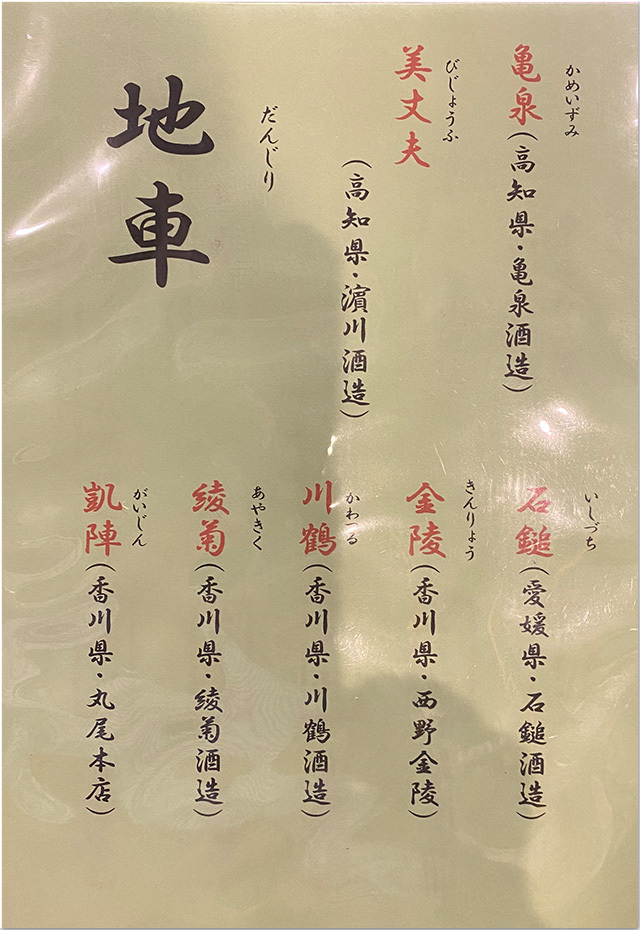 かめいずみ
亀泉（高知県・亀泉酒造）
びじょうふ
美丈夫
（高知県・濵川酒造）
だんじり
地車
いしづち
石鎚（愛媛県・石鎚酒造）
きんりょう
金陵（香川県・西野金陵）
かわつる
川鶴（香川県・川鶴酒造）
あやきく
綾菊（香川県・綾菊酒造）
がいじん
凱陣（香川県・丸尾本店）